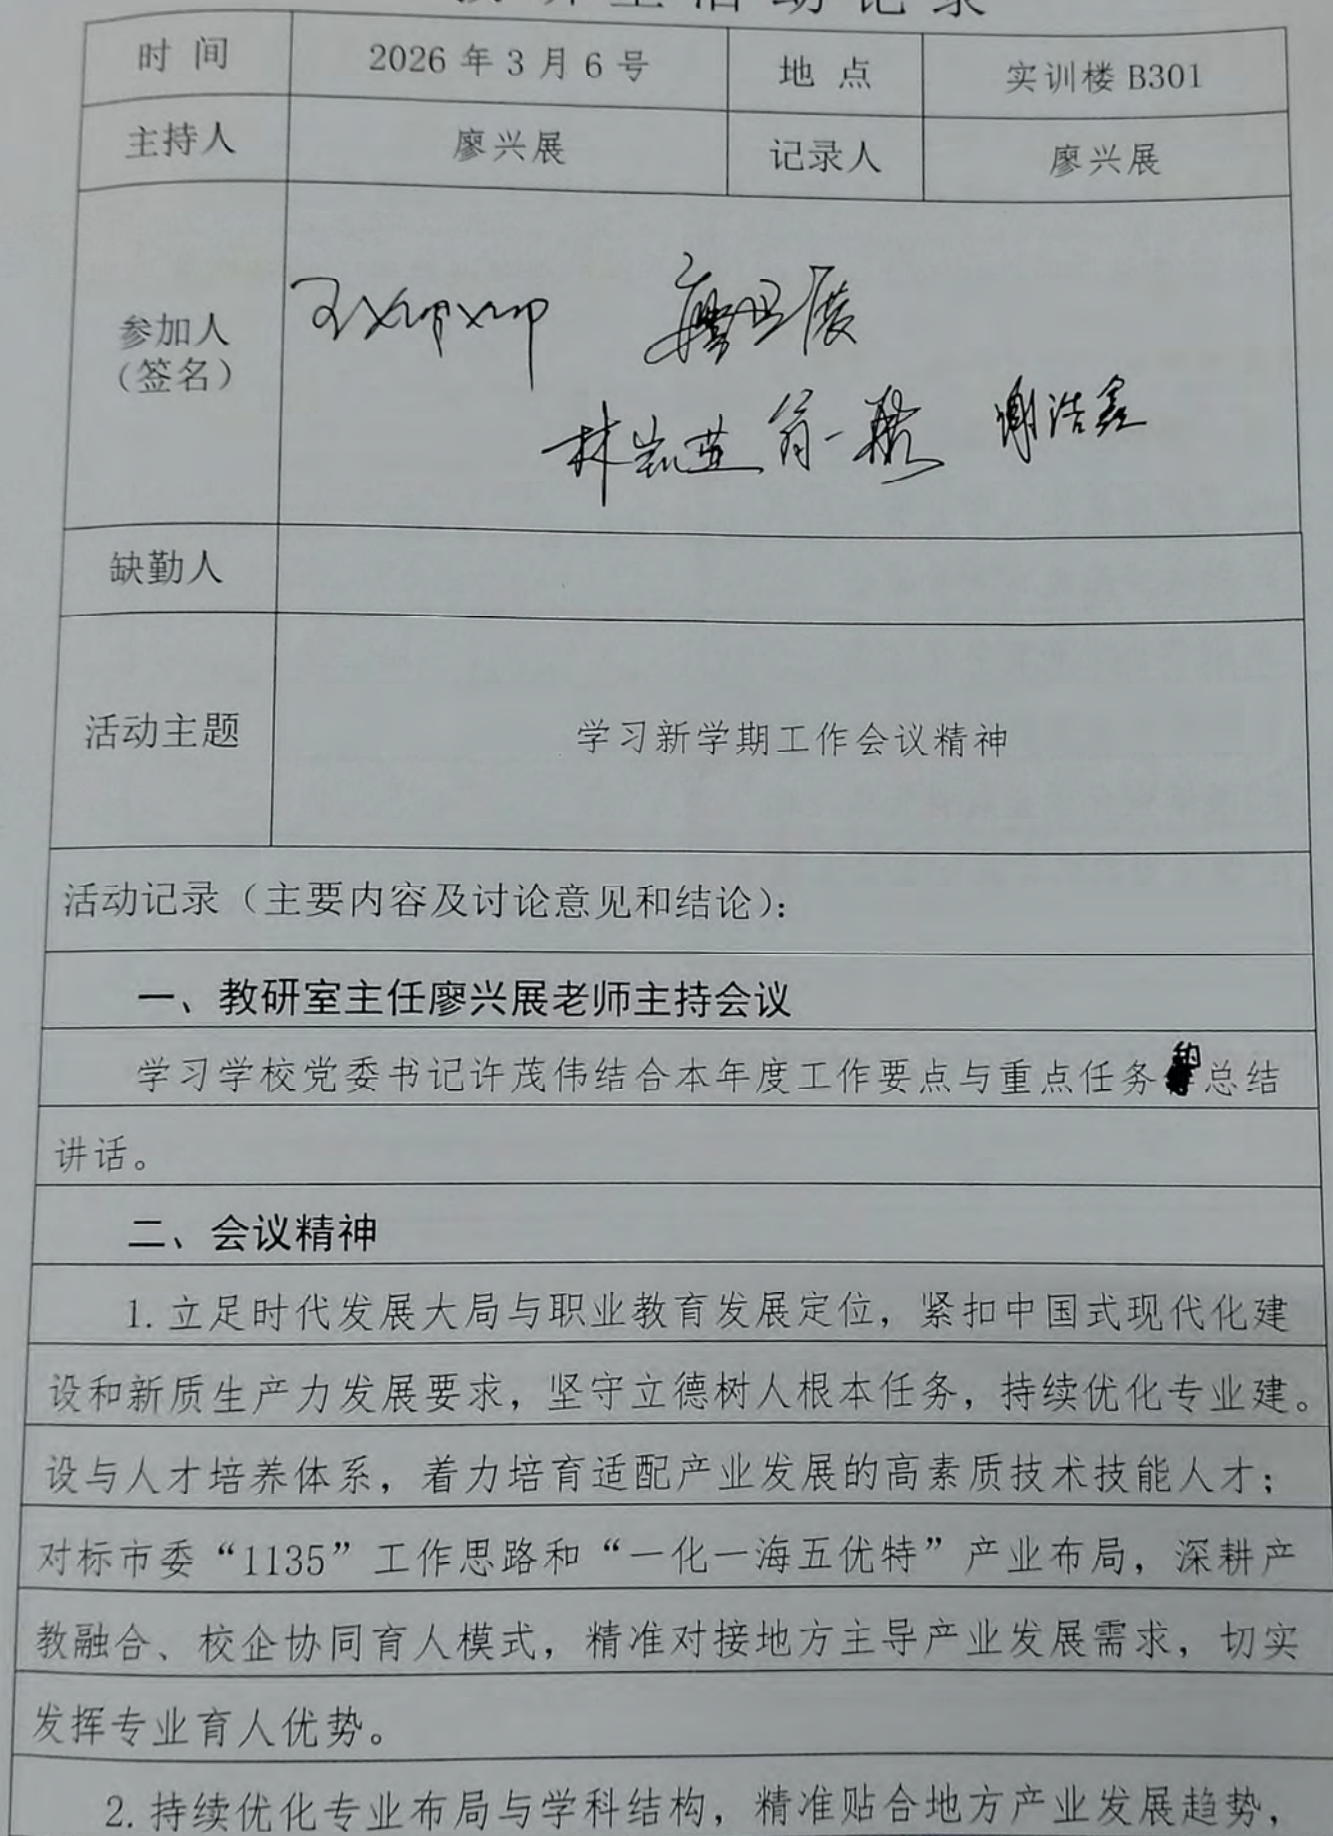 教研室活动记录
时间 2026年3月6号 地点 实训楼B301
主持人 廖兴展 记录人 廖兴展
参加人
（签名）
廖兴展
林凯 翁一 谢浩鑫
缺勤人
活动主题 学习新学期工作会议精神
活动记录（主要内容及讨论意见和结论）：
一、教研室主任廖兴展老师主持会议
学习学校党委书记许茂伟结合本年度工作要点与重点任务和总结
讲话。
二、会议精神
1.立足时代发展大局与职业教育发展定位，紧扣中国式现代化建
设和新质生产力发展要求，坚守立德树人根本任务，持续优化专业建。
设与人才培养体系，着力培育适配产业发展的高素质技术技能人才；
对标市委“1135”工作思路和“一化一海五优特”产业布局，深耕产
教融合、校企协同育人模式，精准对接地方主导产业发展需求，切实
发挥专业育人优势。
2.持续优化专业布局与学科结构，精准贴合地方产业发展趋势，